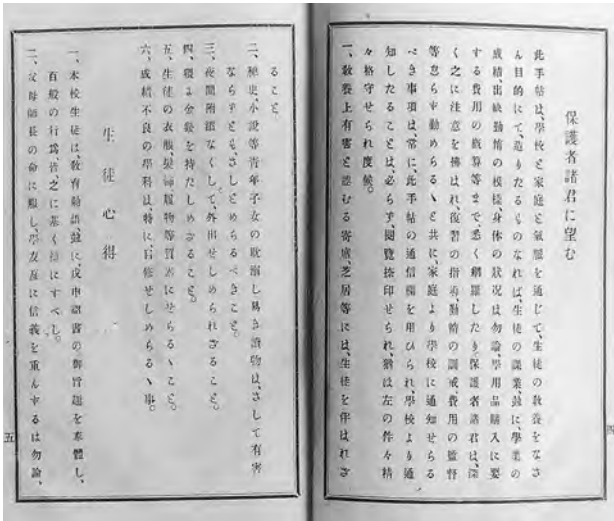 保護者諸君に望む
此手帖は、學校と家庭と氣脈を通じて、生徒の敎養をなさ
ん目的にて、造りたるものなれば、生徒の課業、並に、學業の
成績、出缺勤惰の模樣、身体の狀況は勿論、學用品購入に要
する費用の槪算等まで、悉く網羅したり保護者諸君は、深
く之に注意を拂はれ、復習の指導、勤惰の訓戒費用の監督
等怠らず勤めらるゝと共に、家庭より學校に通知せらる
べき事項は、常に、此手帖の通信欄を用ひられ、學校より通
知したることは、必らず、閱覽捺印せられ、猶は左の件々精
々格守せられ度候。
一、敎養上有害と認むる寄席、芝居等には、生徒を伴はれざ
四
ること、
二、稗史小說等靑年子女の耽溺し易き讀物は、さして有害
ならずとも、さしとめらるべきこと。
三、夜間附添なくして、外出せしめられざること。
四、猥りに金錢を持たしめざること。
五、生徒の衣服髮飾履物等質素にせらるゝこと。
六、成績不良の學科は、特に、自修せしめらるゝ事。
生徒心得
一、本校生徒は、敎育勅語、並に、戊申詔書の御旨趣を奉體し、
百般の行爲、皆、之に基く樣にすべし。
二、父母師長の命に順し、學友互に信義を重んずるは勿論、
五